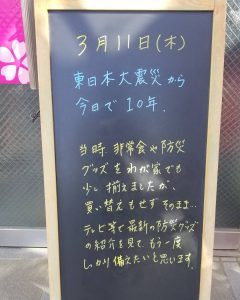 3月11日(木)
東日本大震災から
今日で10年.
当時、非常食や防災
グッズをわが家でも
少し揃えましたが、
買い替えもせずそのまま…
テレビ等で最新の防災グッズ
の紹介を見て、もう一度
しっかり備えたいと思います。